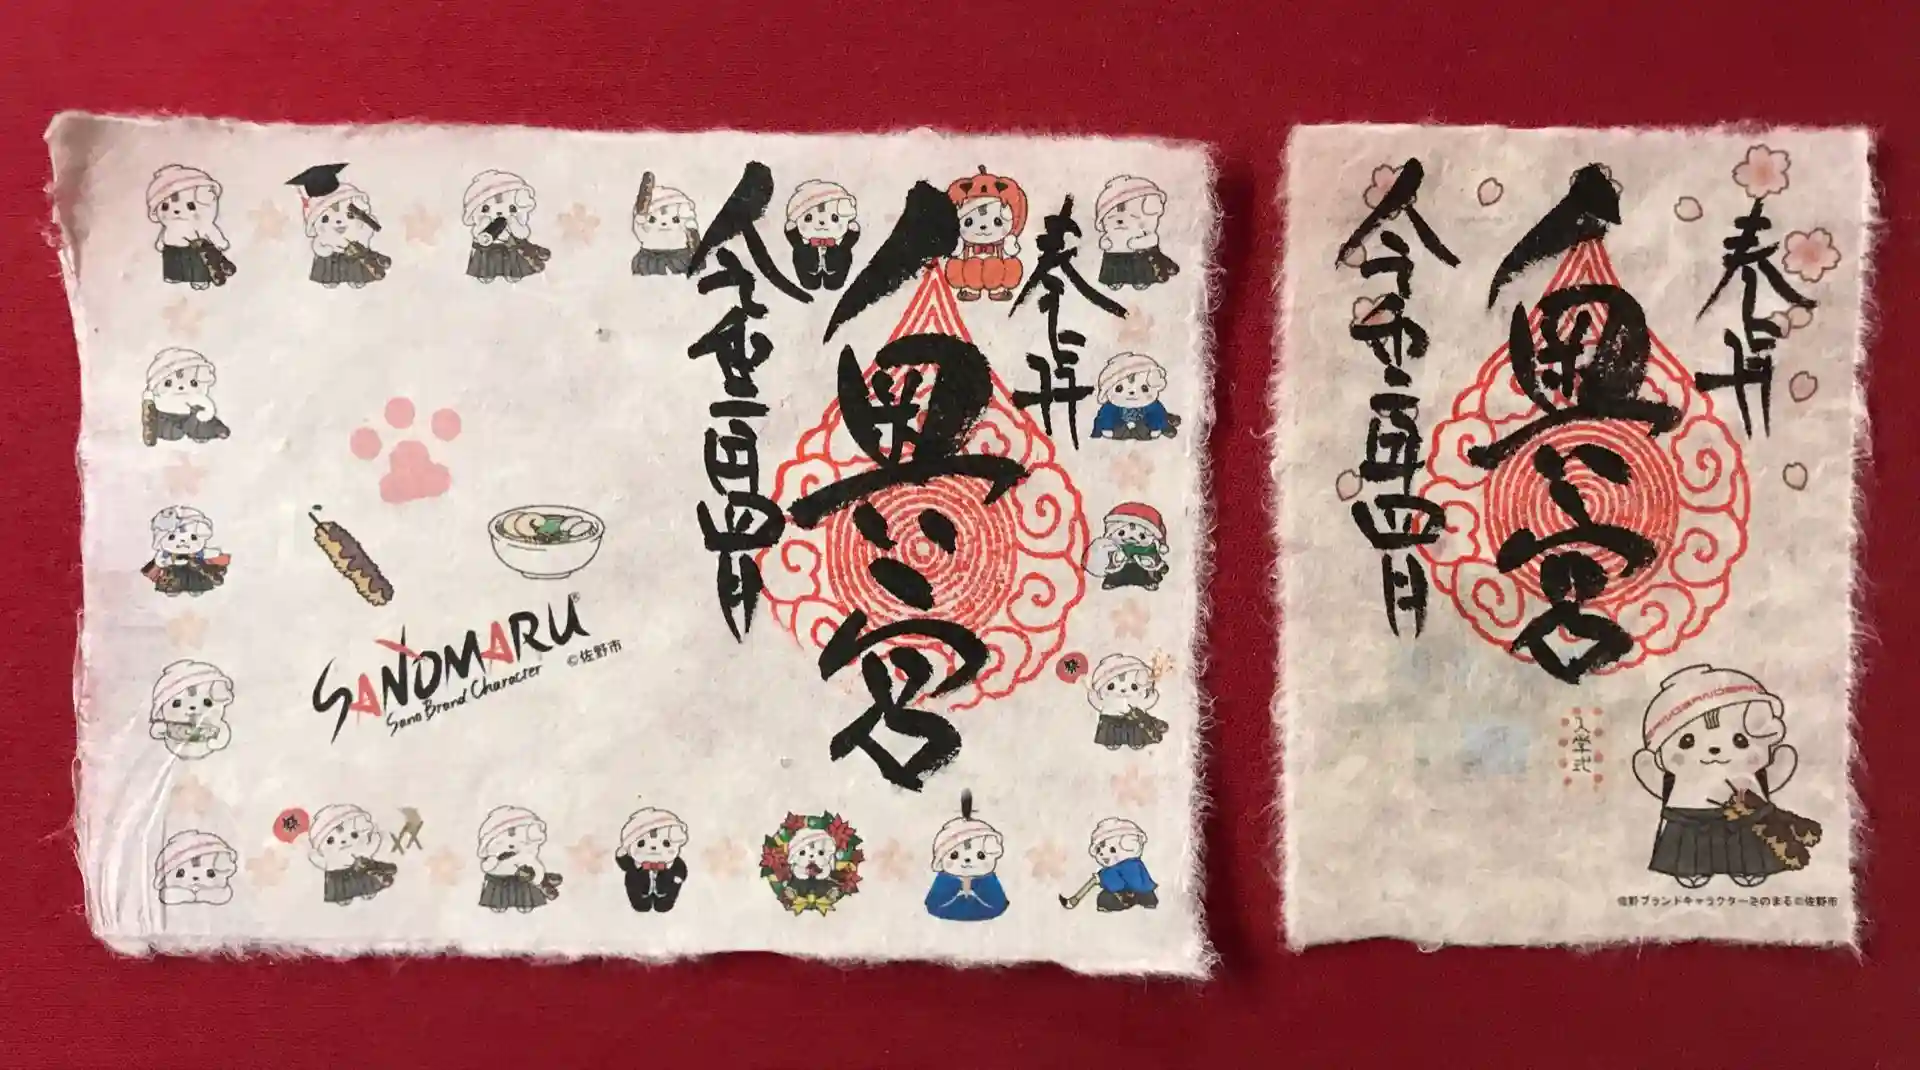 奉拝
奥
宮
令和
年四月
SANOMARU®
Sano Brand Character
©佐野市
祭
祭
奉拝
奥
宮
令和
年四月
入学式
SANOMARU
佐野ブランドキャラクターさのまる©佐野市